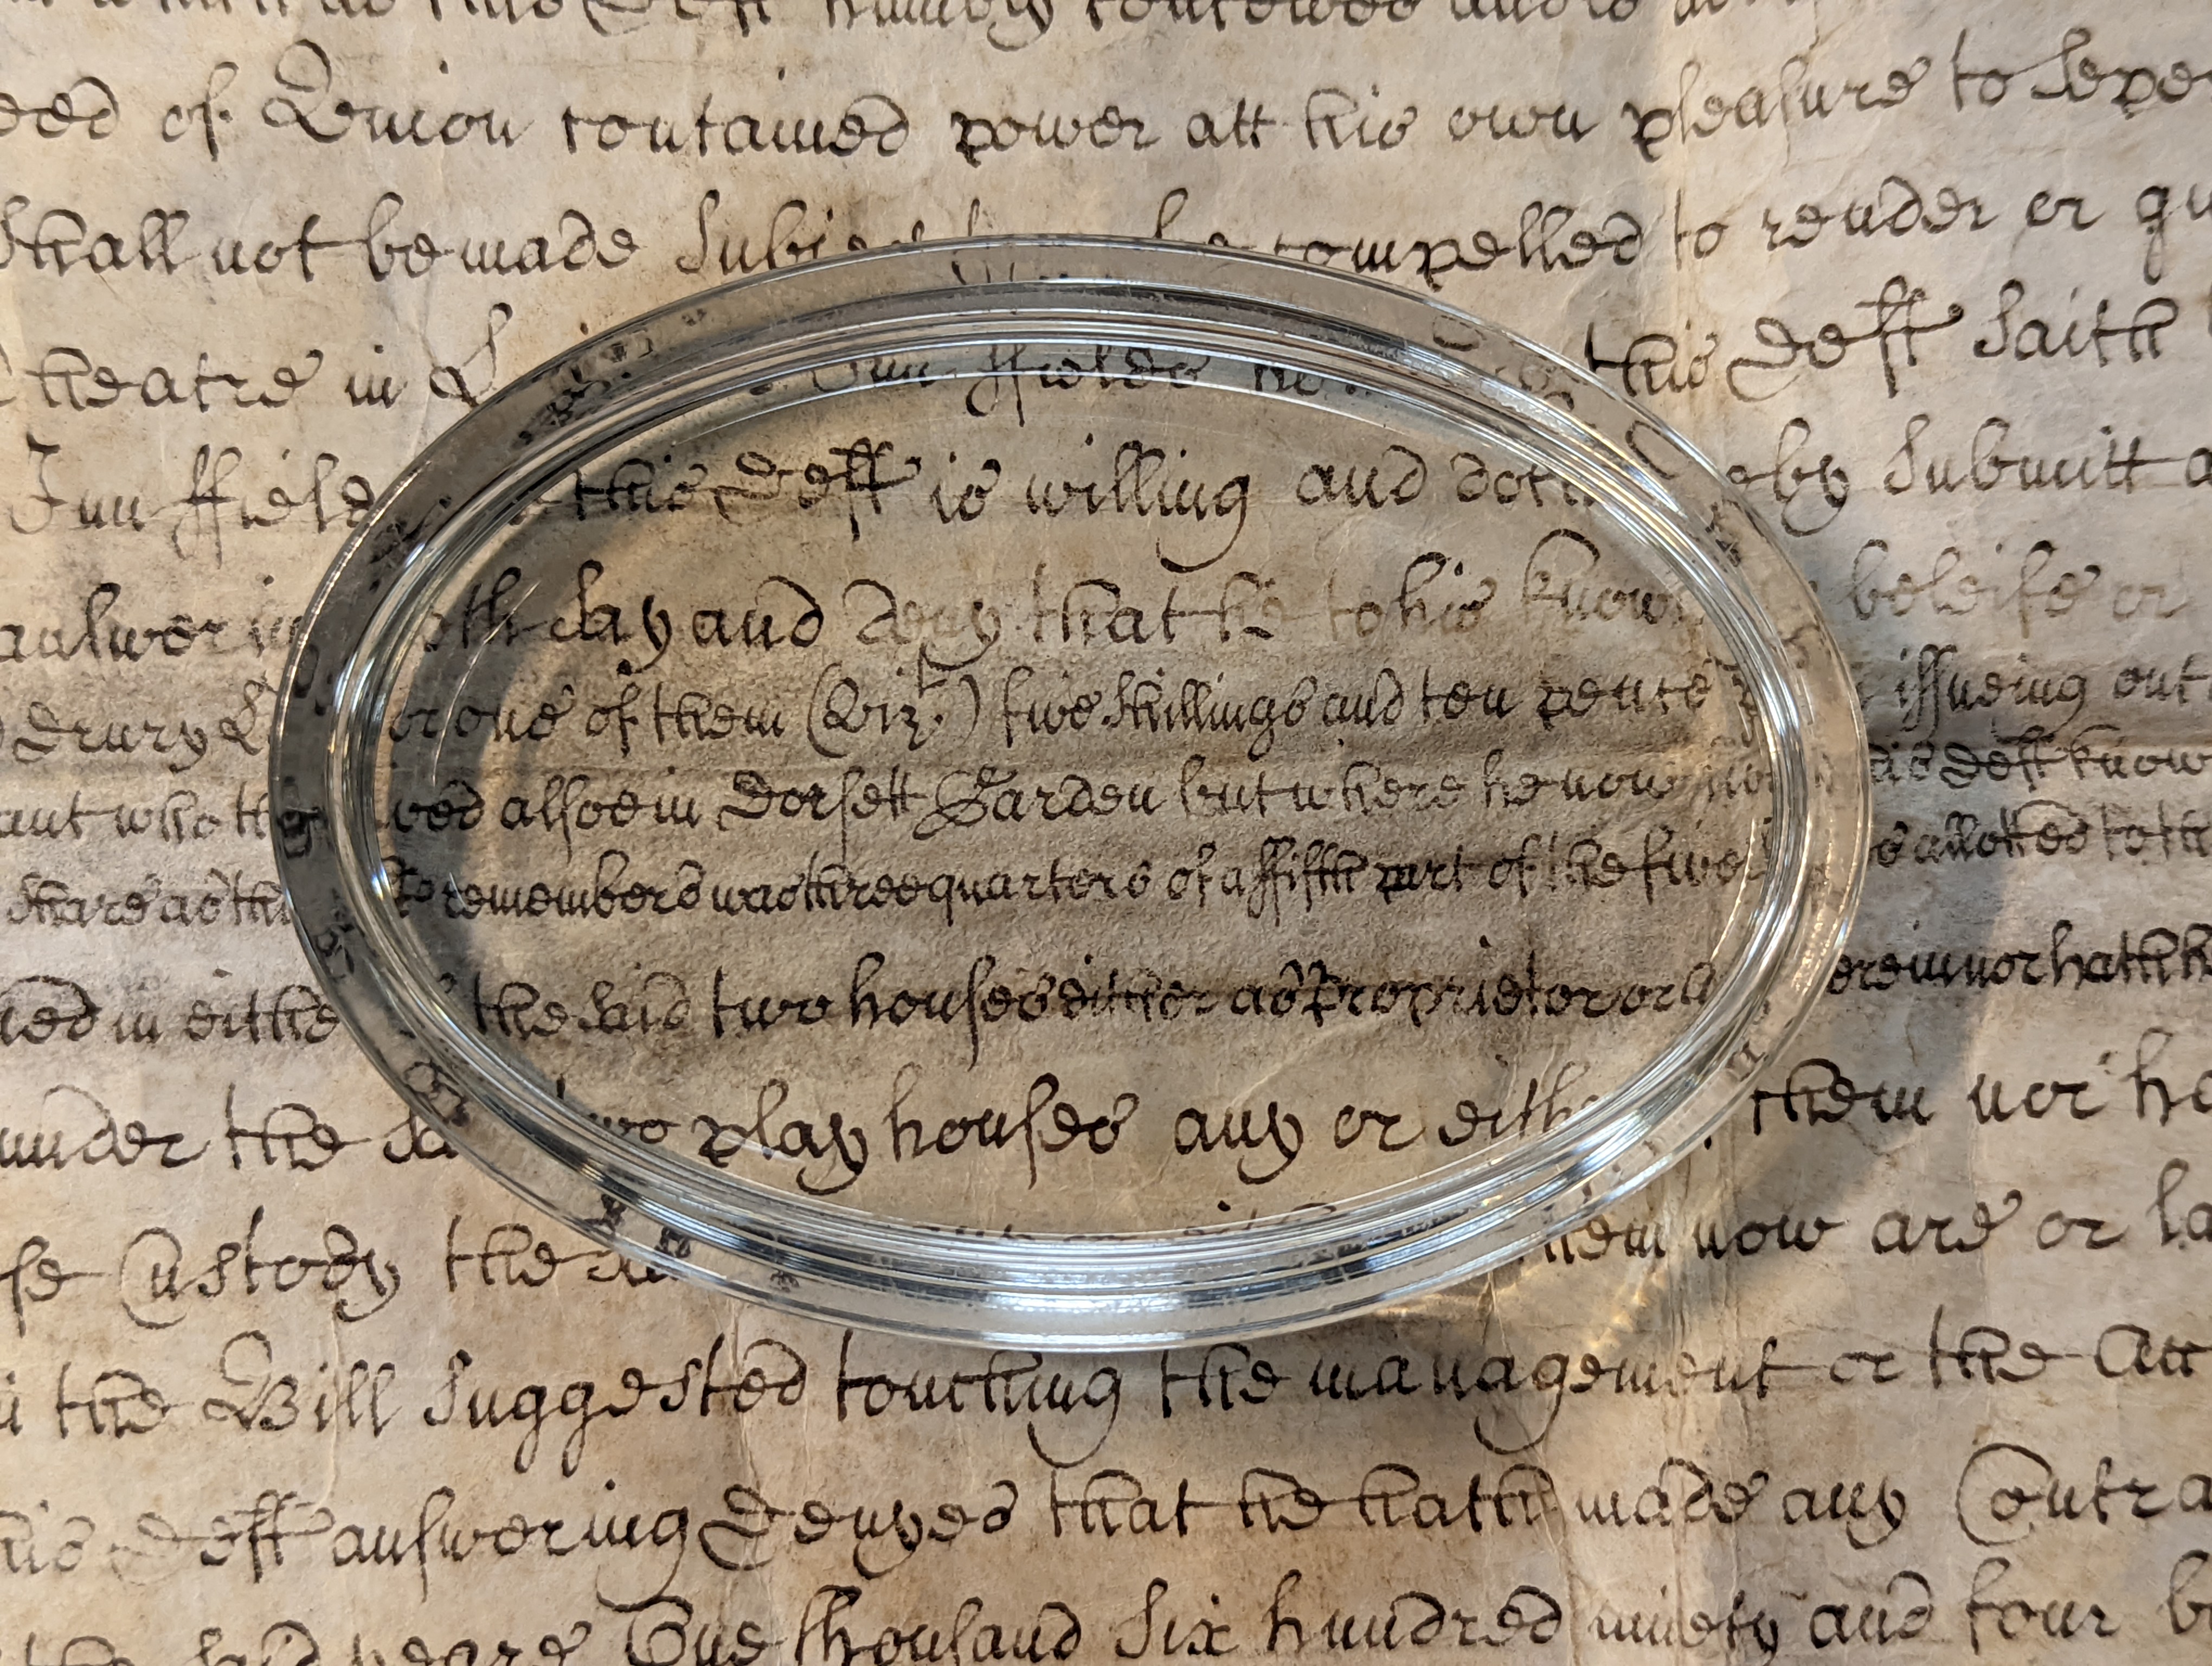 of Union contained power att his own pleasure to
shall not be made compelled to render or
in this Deft saith
Inn ffields this Deft is willing and Submitt
answer say and deny that he to his beleife or
Drury or one of them (Vizt.) five shillings and ten pence issueing out
who alsoe in Dorsett Garden but where he now Deft know
share as remembers was three quarters of a ffifth part of the five allotted to
in the said two houses either as Proprietor or nor hath
under the two play houses any or them nor
Custody the now are or
the Bill suggested touching the management or the
Deft answering Denyes that he hath made any
said yeare One thousand six hundred ninety and four